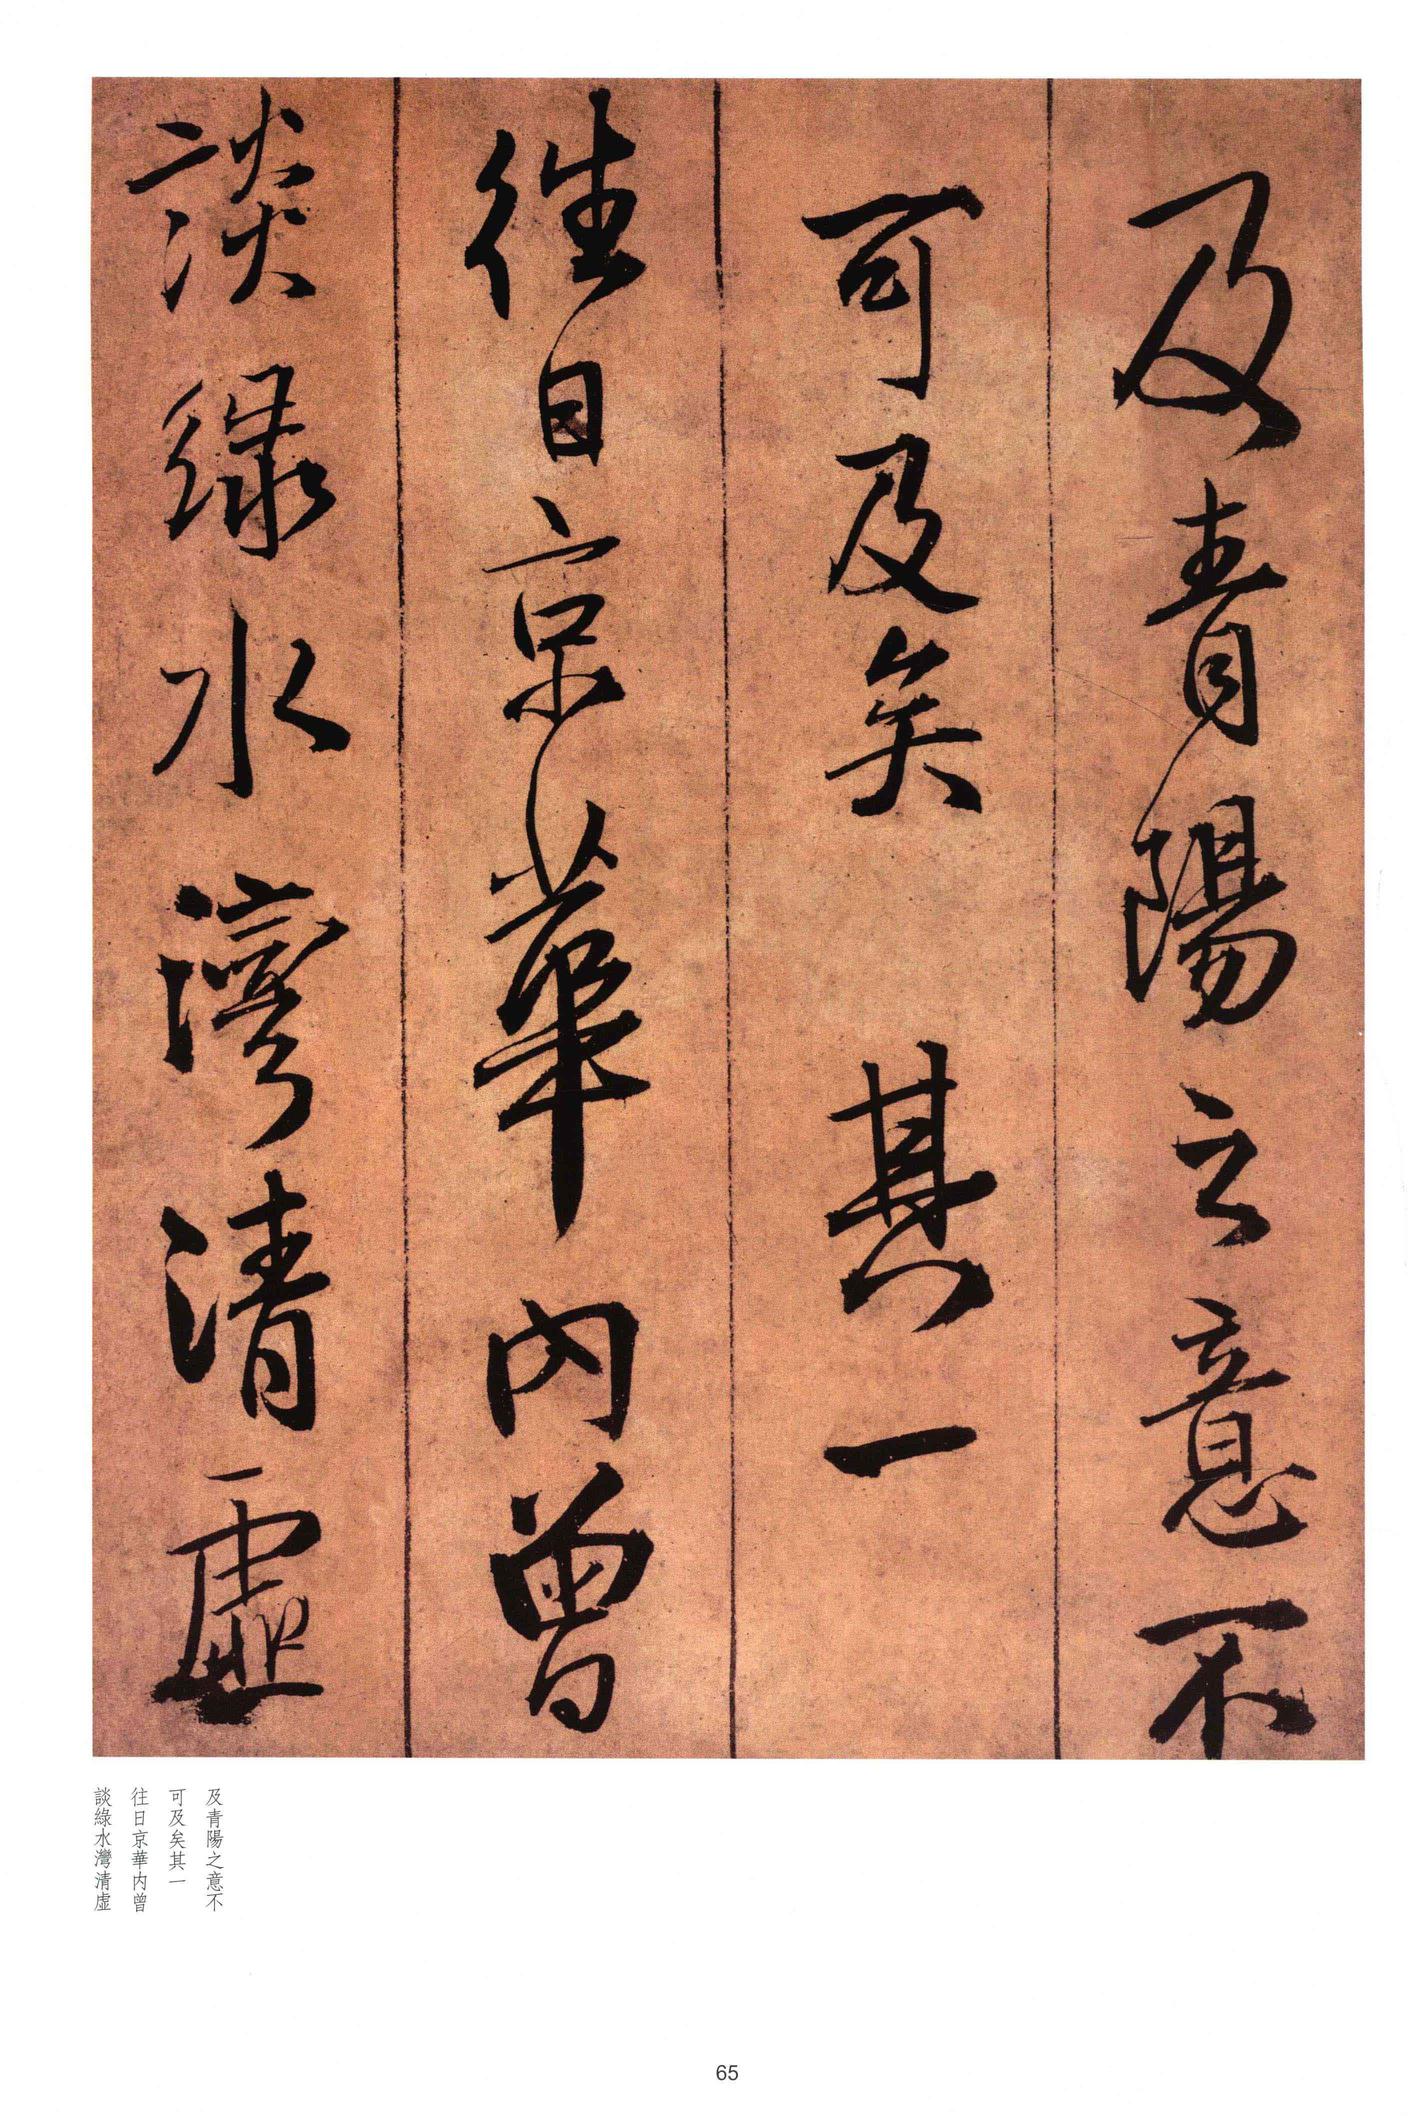 及青陽之意不
可及矣 其一
往日京華内曾
談綠水灣清虛
及青陽之意不
可及矣其一
往日京華内曾
談綠水灣清虛
65